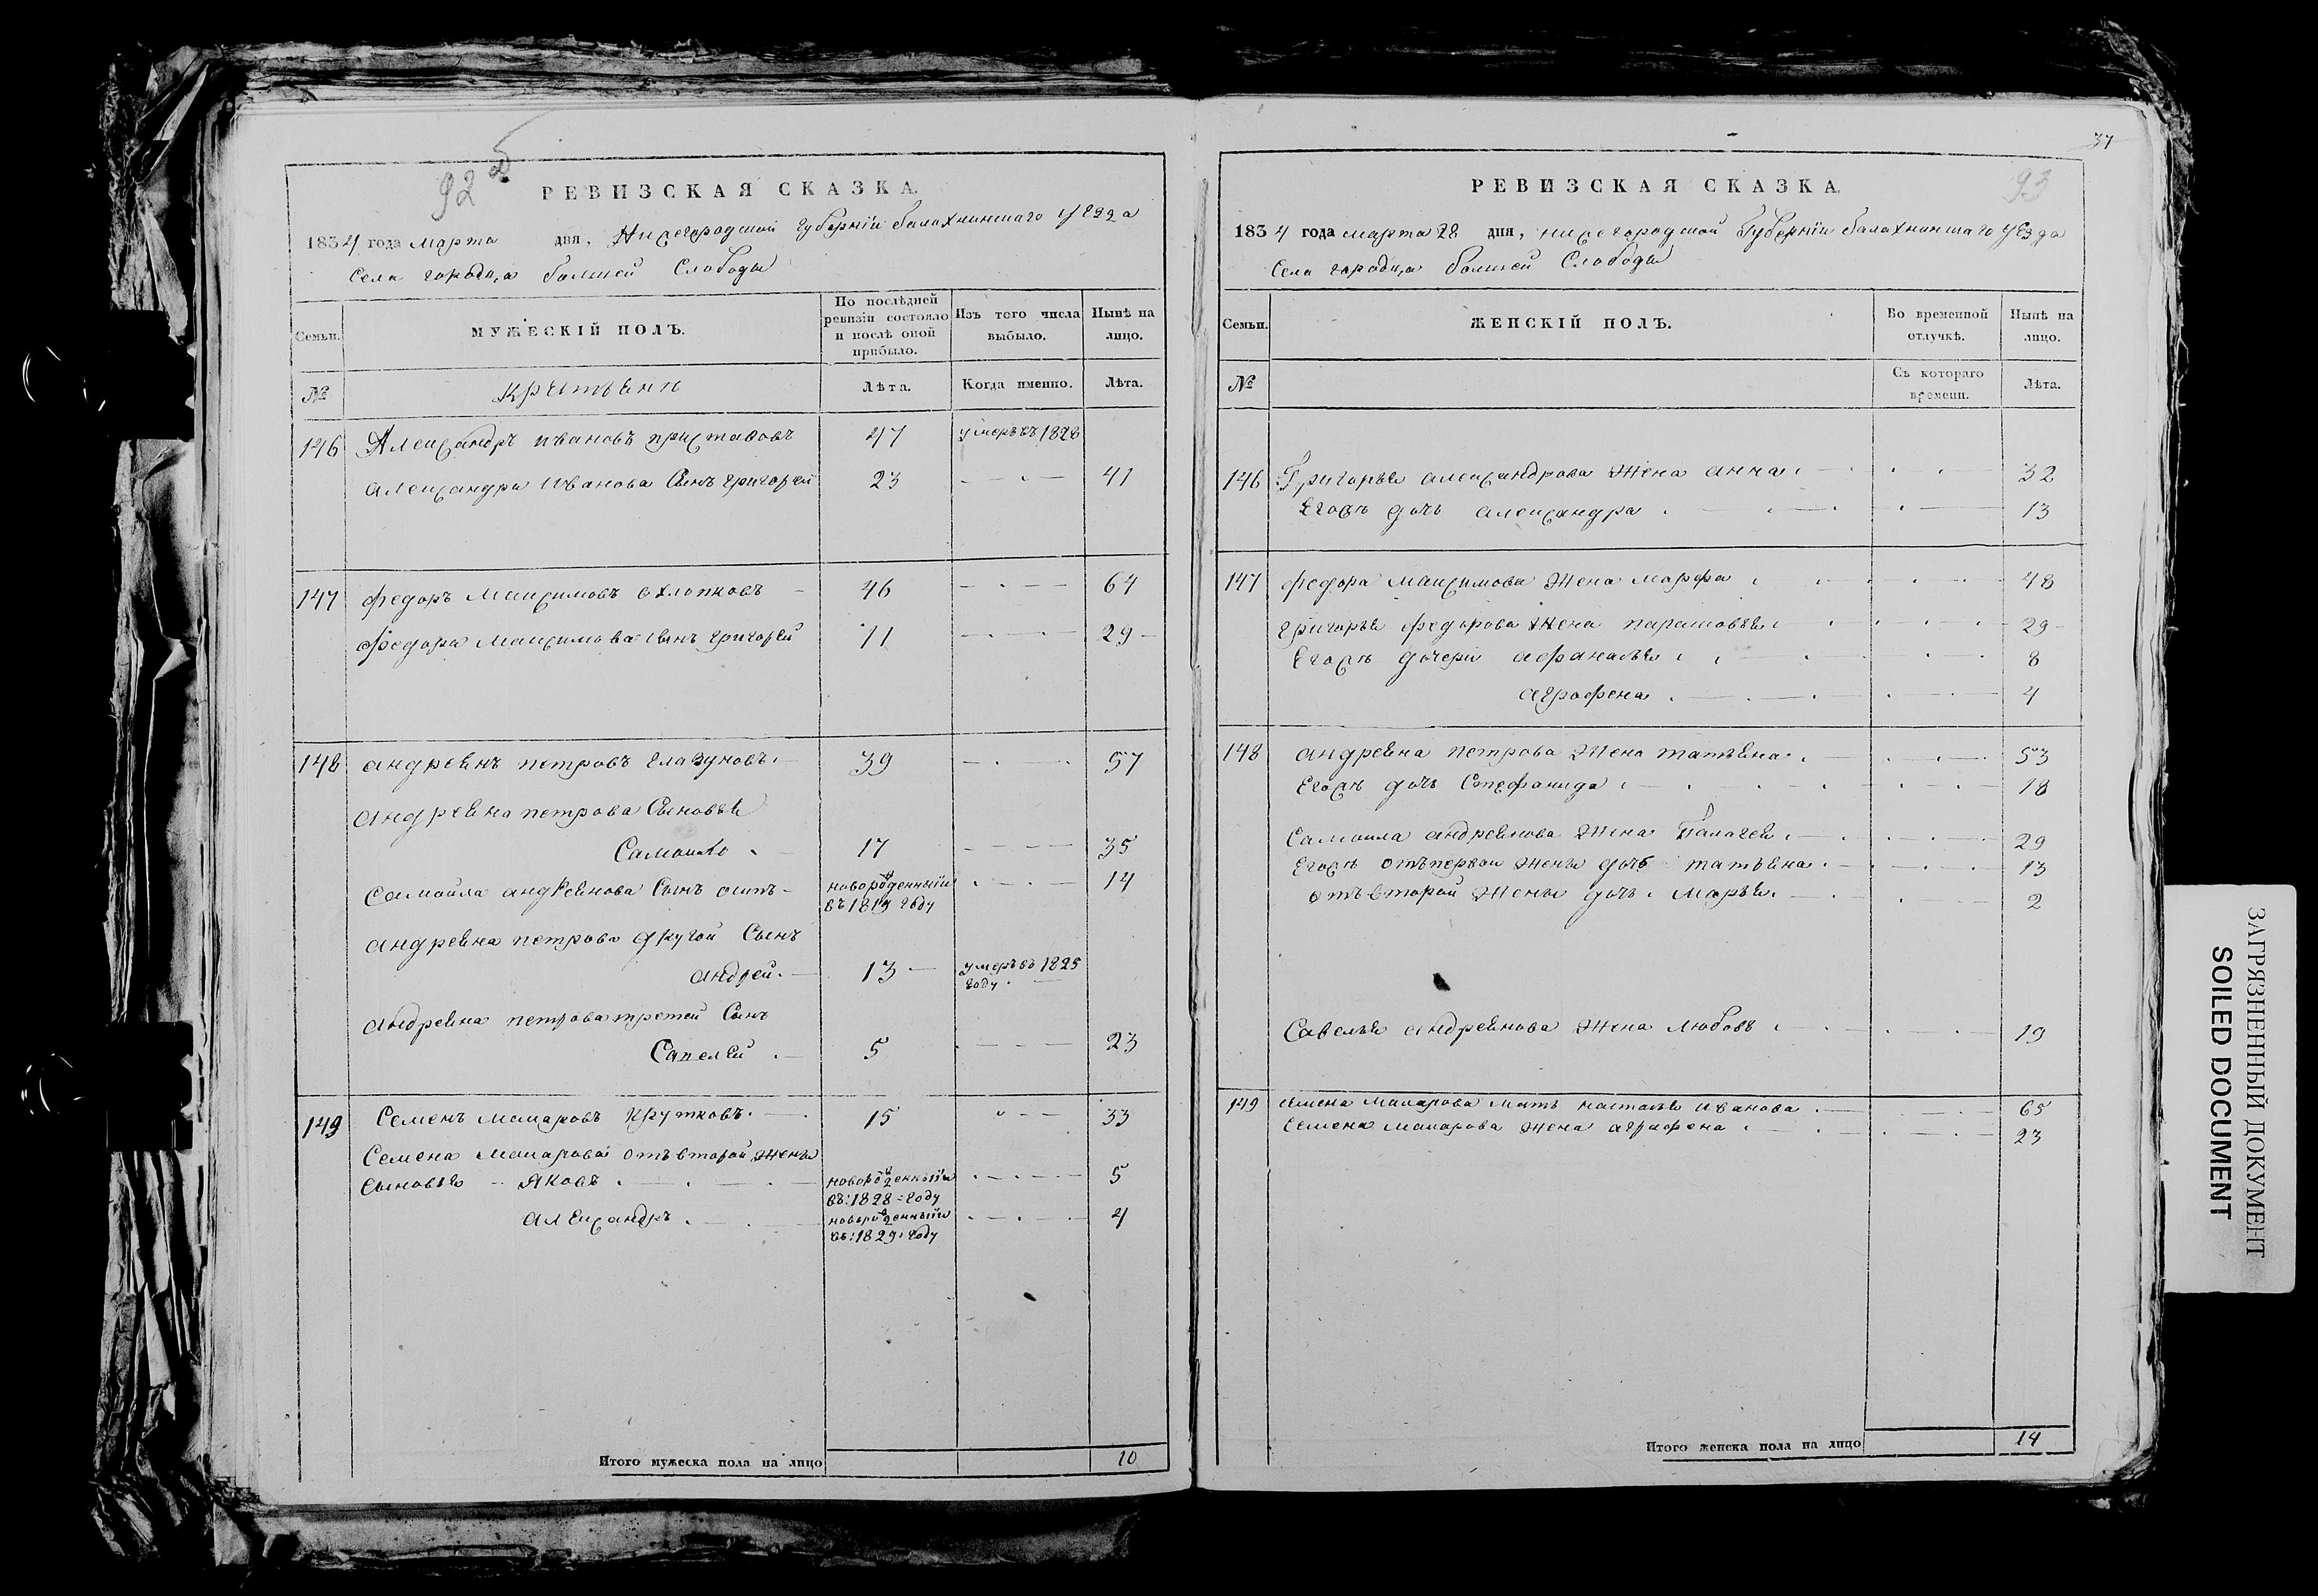 92 б
РЕВИЗСКАЯ СКАЗКА.
1834 года марта дня, Нижегородской губернiи балахнинскаго уезда
села городца болшей Слободы
Семьи.
МУЖЕСКIЙ ПОЛЪ.
По послѣдней ревизiи состояло и послѣ оной прибыло.
Изъ того числа выбыло.
Нынѣ на лицо.
№
крестьяни
Лѣта.
Когда именно.
Лѣта.
146 Александръ ивановъ приставовъ 47 умеръ въ 1828
александра иванова сынъ григорей 23 41
147 федоръ максимовъ охлопковъ 46 64
федора максимова сынъ григорей 11 29
148 андреянъ петровъ глазуновъ 39 57
андреяна петрова сыновья
Самоило 17 35
самойла андреянова сынъ осипъ новорожденный 14
въ 1819 году
андреяна петрова другой сынъ
андрей 13 умеръ въ 1825
году
андреяна петрова третей сынъ
Савелей 5 23
149 Семенъ макаровъ крутковъ 15 33
Семена макарова отъ второй жены
сыновья Яковъ новорожденный 5
въ 1828 году
александръ новорожденный 4
въ 1829 году
Итого мужеска пола на лицо 10
37
93
РЕВИЗСКАЯ СКАЗКА.
1834 года марта 28 дня, нижегородской губернiи балахнинскаго уезда
села городца болшей Слободы
Семьи.
ЖЕНСКIЙ ПОЛЪ.
Во временной отлучкѣ.
Нынѣ на лицо.
№
Съ котораго времени.
Лѣта.
146 Григорья александрова жена анна 32
Егожъ дочь александра 13
147 федора максимова жена марфа 48
григорья федорова жена парасковья 29
Егожъ дочери афанасья 8
аграфена 4
148 андреяна петрова жена татьяна 53
Егожъ дочь Степанида 18
Самоила андреянова жена Палагея 29
Егожъ отъ первой жены дочь татьяна 13
отъ второй жены дочь марья 2
Савелья андреянова жена любовь 19
149 семена макарова мать насталья иванова 65
семена макарова жена аграфена 23
Итого женска пола на лицо 14
ЗАГРЯЗНЕННЫЙ ДОКУМЕНТ
SOILED DOCUMENT